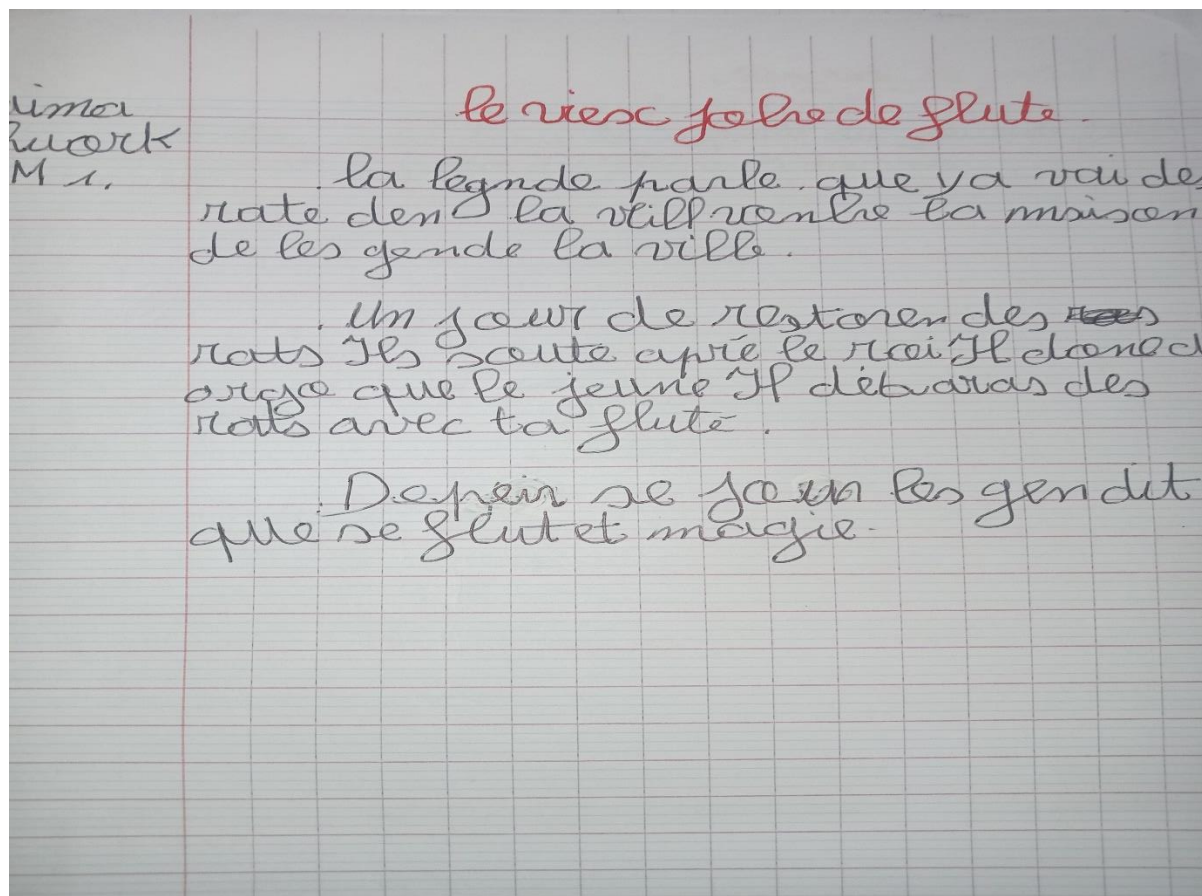 uma
work
M 1.
le viesc johe de flute.
la legnde parle que ya vai de
rate den la veill ventre la maison
de les gende la ville.
Un jour de restoren des
rats Ils scoute aprie le roi Il doned
orge que le jeune Il débaras des
rats avec ta flute.
Depein se jouur les gen dit
que se flut et magie.